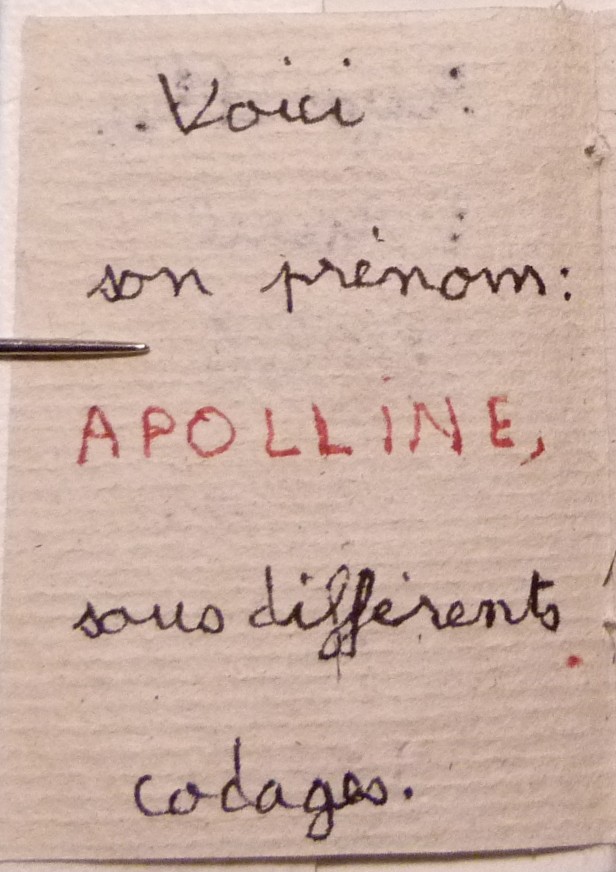 Voici :
son prénom:
APOLLINE,
sous différents
codages.